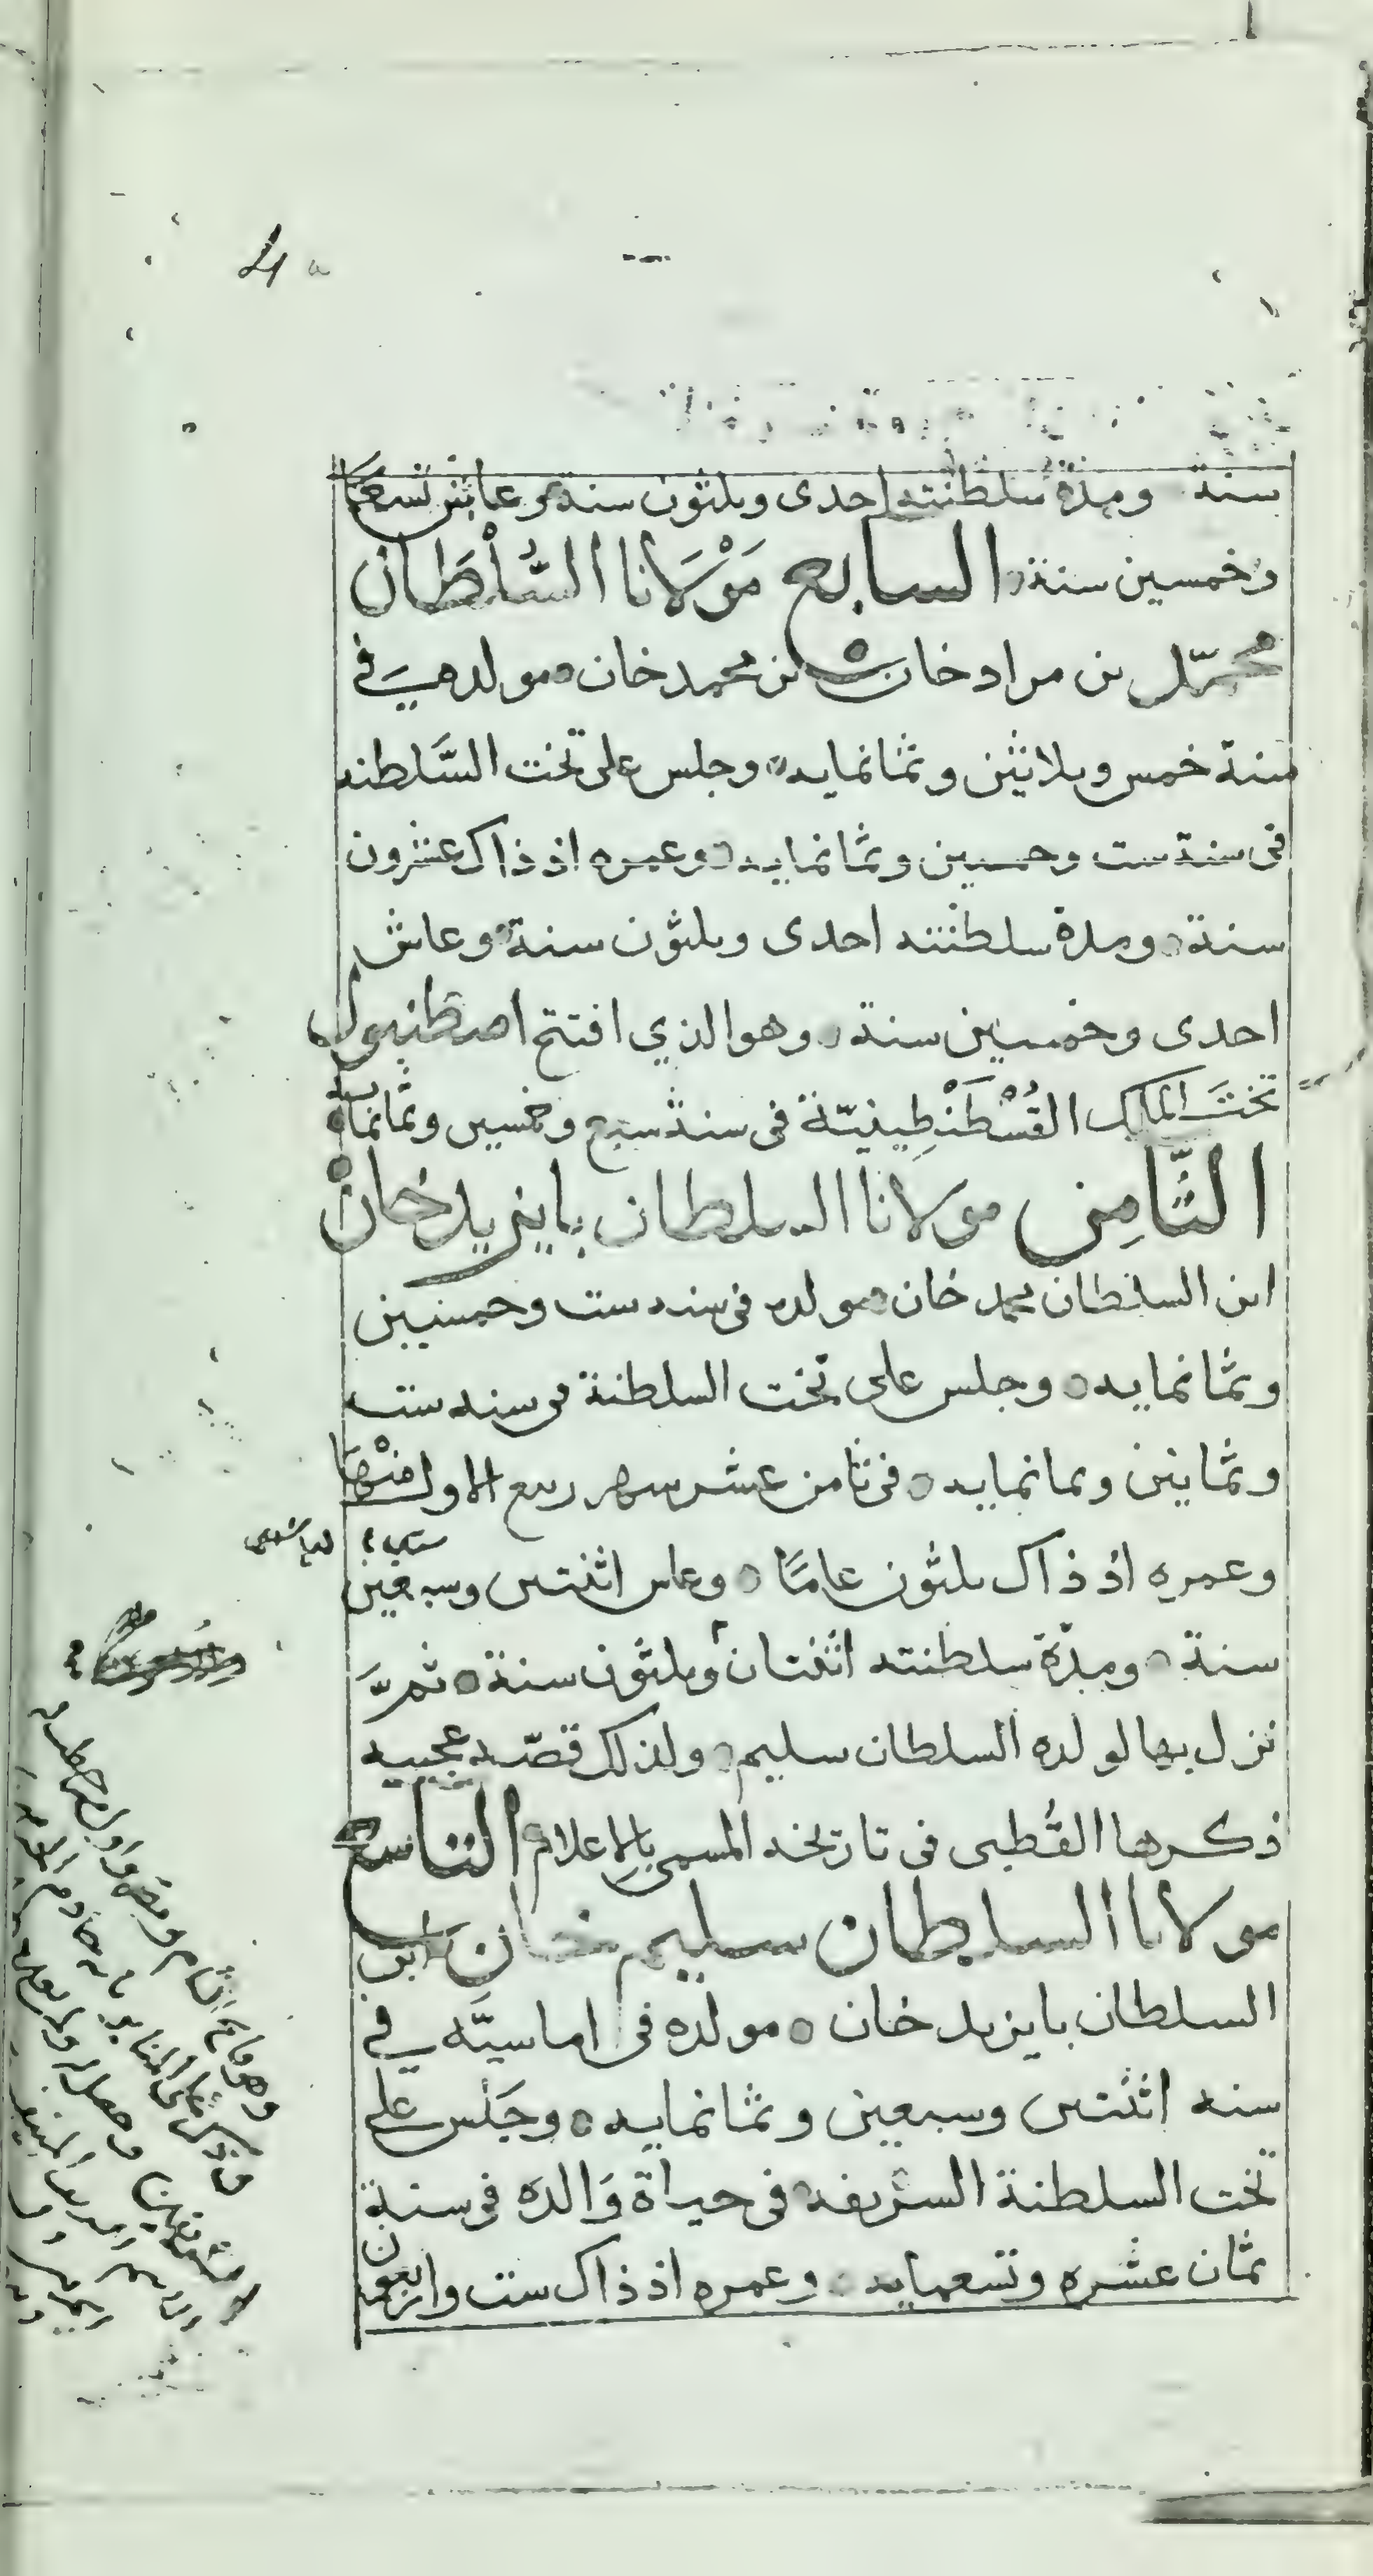 4a
سنة ومدة سلطنته احدى وثلثون سنة وعاش تسعا
وخمسين سنة السابع مَوْلَانا السُّلْطَان
محمّد بن مراد خان بن محمد خان مولده في
سنة خمس وثلاثين وثمانمايه وجلس على تخت السَّلطنه
فى سنة ست وخمسين وثمانمايه وعمره اذ ذاك عشرون
سنة ومدة سلطنته احدى وثلثون سنة وعاش
احدى وخمسين سنة وهو الذي افتتح اصطنبول
تخت الملك القُسْطَنْطِينيّة فى سنة سبع وخمسين وثمانمايه
الثَّامِن مولانا السلطان بايزيد خان
ابن السلطان محمد خان مولده فى سنه ست وخمسين
وثمانمايه وجلس على تخت السلطنة فى سنه ست
وثمانين وثمانمايه فى ثامن عشر شهر ربيع الاول منْهَا
وعمره اذ ذاك ثلثون عامًا وعاش اثنتين وسبعين
سنة ومدّة سلطنته اثنتان وثلثون سنة ثمَّ
نزل بها لولده السلطان سليم ولذلك قصّه عجيبه
ذكرها القُطبى فى تاريخه المسمى بالاعلام التاسع
مولانا السلطان سليم خان ابن
السلطان بايزيد خان مولده فى اماسيَّه في
سنه اثنتين وسبعين وثمانمايه وجَلَس على
تخت السلطنة الشريفه فى حياة وَالده فى سنة
ثمان عشره وتسعمايه وعمره اذ ذاك ست واربعون